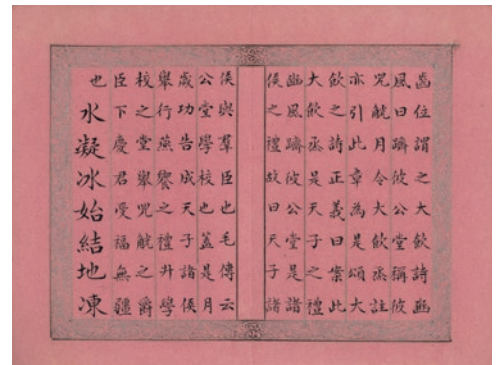 齒位謂之大飲詩豳
風曰躋彼公堂稱彼
兕觥月令大飲烝註
亦引此章為是頌大
飲之詩正義曰案此
大飲烝是天子之禮
豳風躋彼公堂是諸
侯之禮故曰天子諸
侯與羣臣也毛傳云
公堂學校也蓋是月
歲功告成天子諸侯
舉行燕饗之禮升學
校之堂舉兕觥之爵
臣下慶君受福無疆
也
水凝冰始結地凍